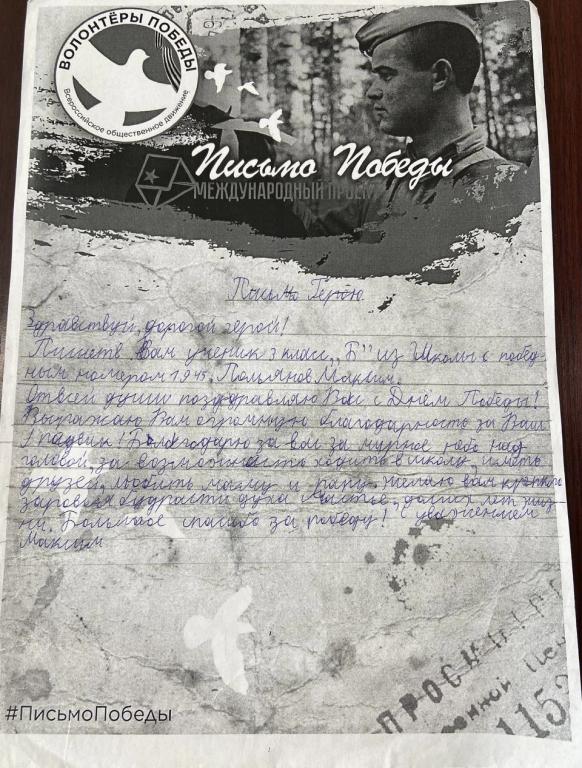 ВОЛОНТЁРЫ ПОБЕДЫ
Всероссийское общественное движение
Письмо Победы
МЕЖДУНАРОДНЫЙ ПРОЕКТ
Письмо Герою
Здравствуй, дорогой герой!
Пишетв Вам ученик 3 класс „Б" из Школы с побед-
ным номером 1945, Польянов Максим.
Отвсей души поздравляю Вас с Днём Победы!
Выражаю Вам огромную благодарность за Ваш
Подвиг! Балагодарю за вам за мирное небо над
головой, за возможность ходить в школу, иметь
друзей, любить маму и папу. Желаю вам крепкого
здоровья бодрасти духа счастье, долгих лет жиз-
ни. Большое спасибо за победу! С уважением
Максим
#ПисьмоПобеды
1153